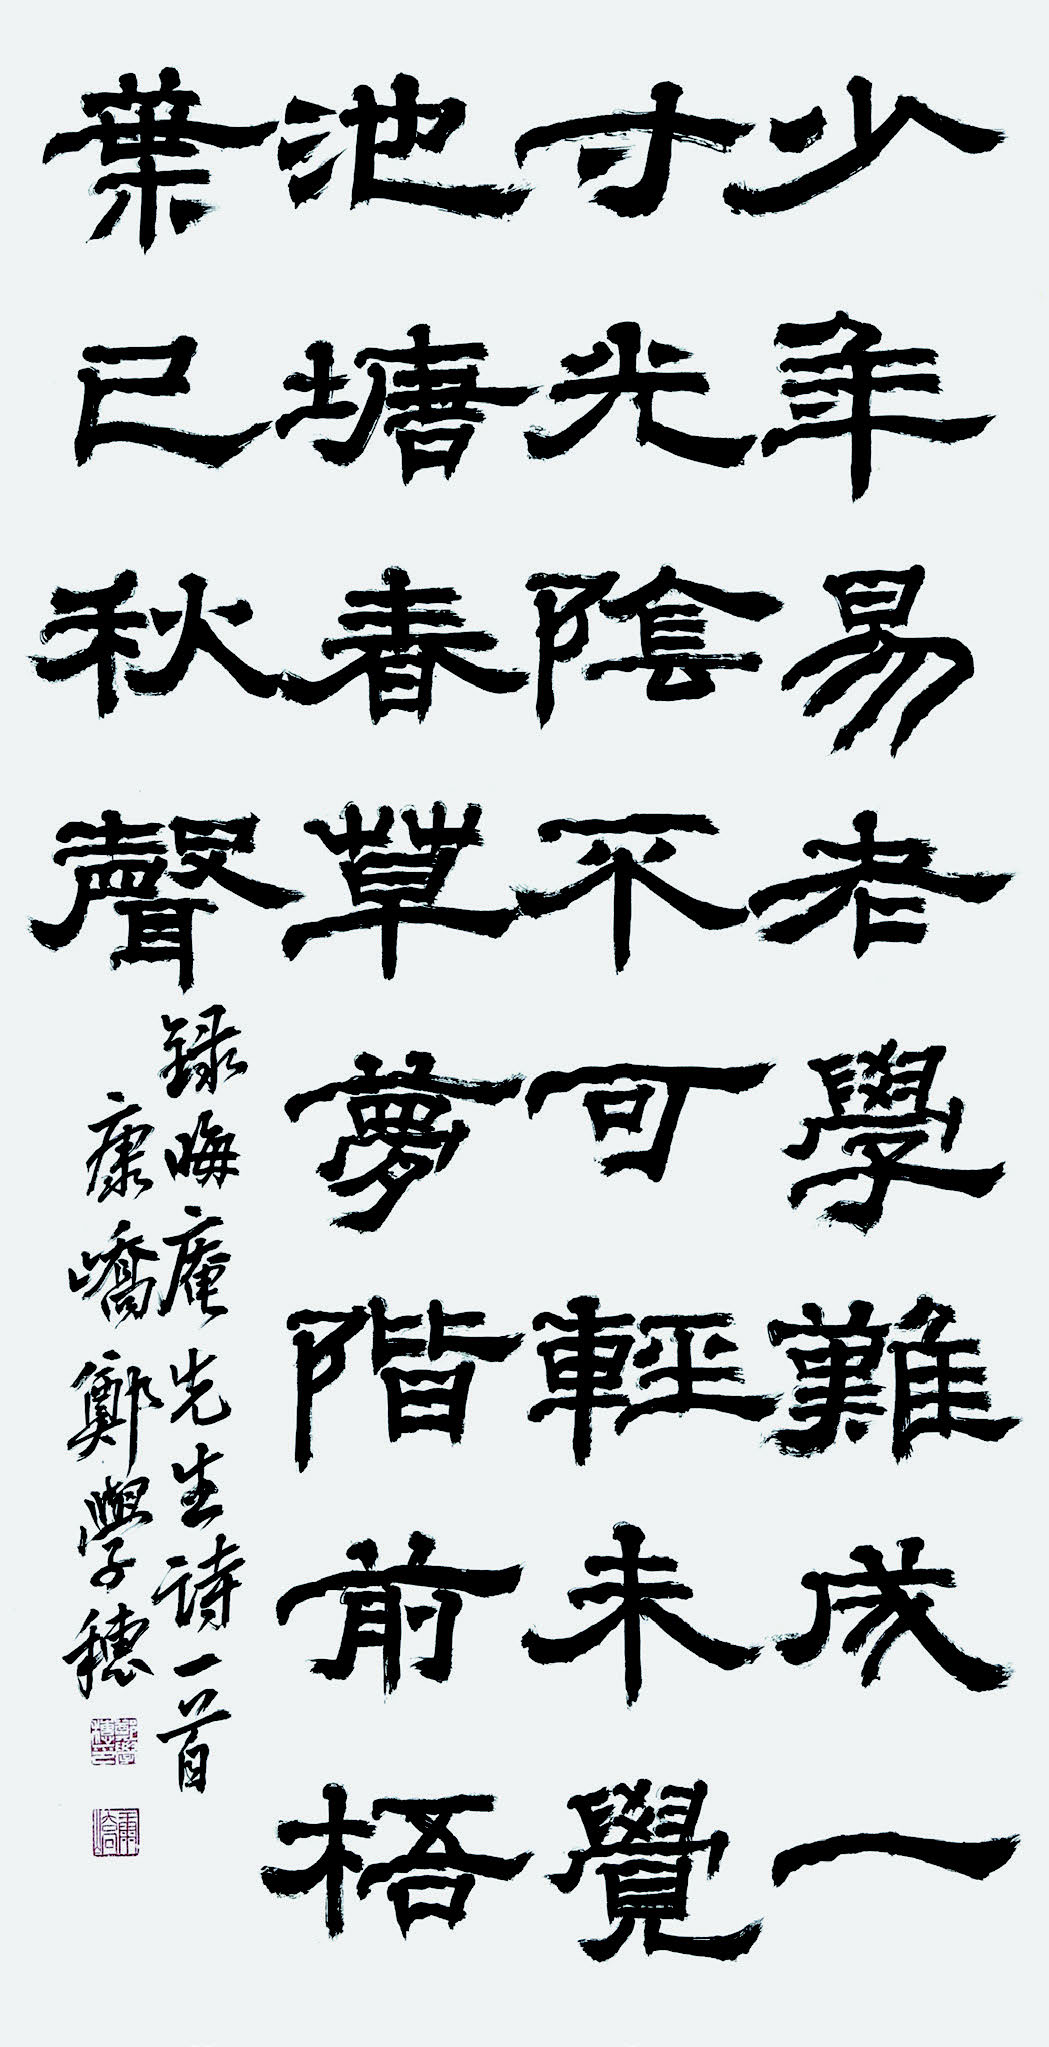 少年易老學難成一
寸光陰不可輕未覺
池塘春草夢階前梧
葉已秋聲
録晦庵先生詩一首
康嶠鄭學穗
鄭學穗印
康嶠